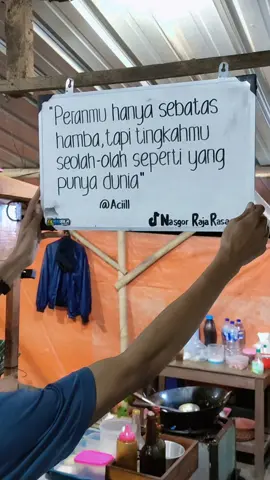 "Peranmu hanya sebatas
hamba, tapi tingkahmu
seolah-olah seperti yang
punya dunia"
@Aciill
Nasgor Raja Rasa